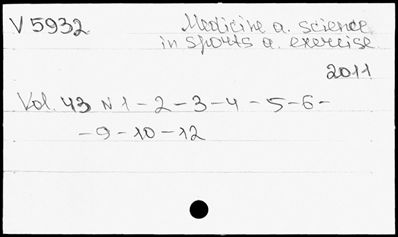 V 5932 Medicine a. science
in sports a. exercise
2011
Vol. 43 N 1 - 2 - 3 - 4 - 5 - 6 -
- 9 - 10 - 12